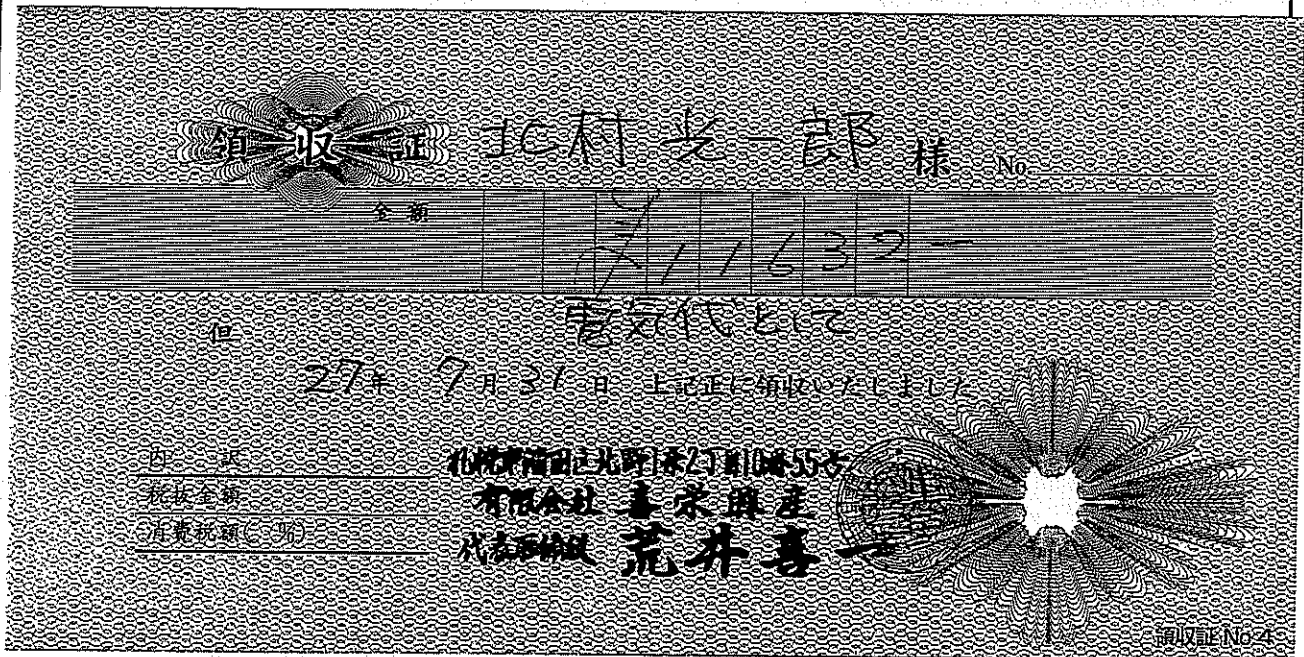 領収証 北村光一郎 様 No.
金額
¥11632-
但 電気代として
27年 7月31日 上記正に領収いたしました
内訳
税抜金額
消費税額( %)
札幌市清田区北野1条2丁目10番55号
有限会社 喜栄興産
代表取締役 荒井喜一
領収証 No.4